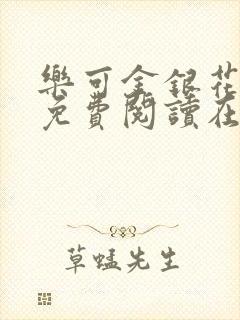 樂可金銀花
免費閱讀在
草蜢先生